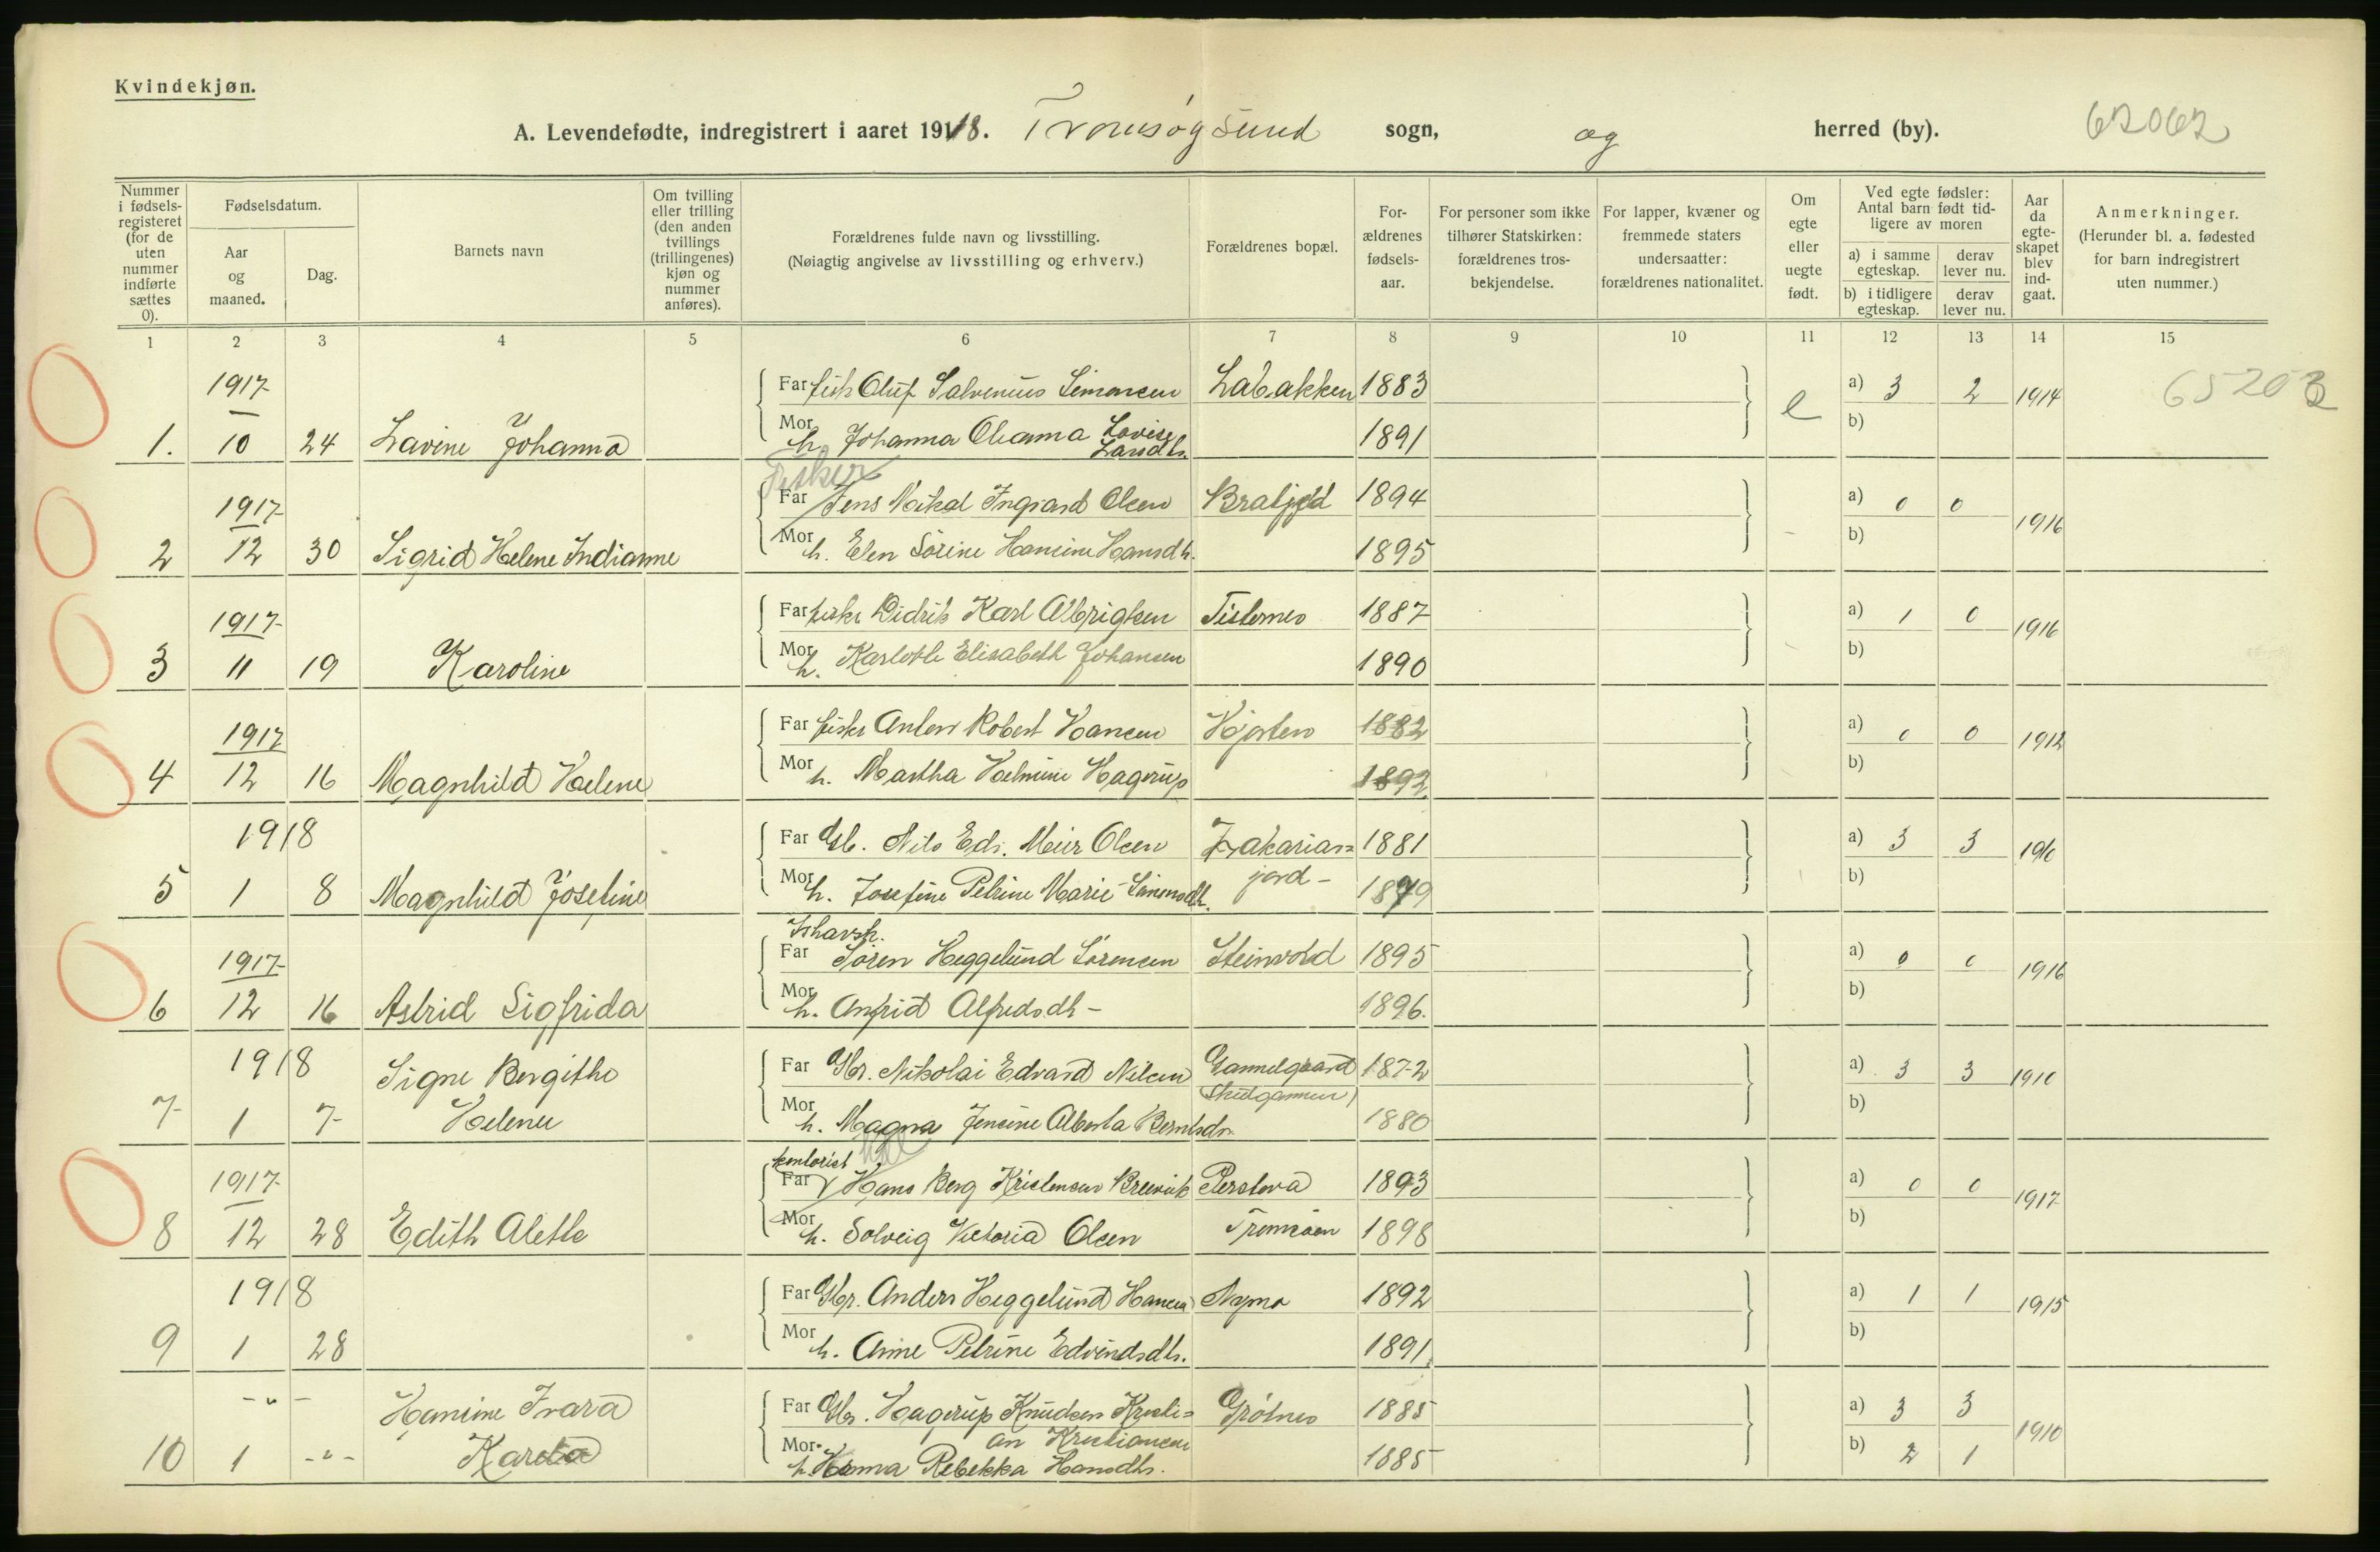 Kvindekjøn.
A. Levendefødte, indregistrert i aaret 1918. Tromsøysund sogn, og herred (by). 62062
Nummer i fødsels-registeret (for de uten nummer indførte sættes 0).
Fødselsdatum.
Aar og maaned.
Dag.
Barnets navn
Om tvilling eller trilling (den anden tvillings (trillingenes) kjøn og nummer anføres).
Forældrenes fulde navn og livsstilling.
(Nøiagtig angivelse av livsstilling og erhverv.)
Forældrenes bopæl.
For-ældrenes fødsels-aar.
For personer som ikke tilhører Statskirken: forældrenes tros-bekjendelse.
For lapper, kvæner og fremmede staters undersaatter: forældrenes nationalitet.
Om egte eller uegte født.
Ved egte fødsler: Antal barn født tid-ligere av moren
a) i samme egteskap.
derav lever nu.
b) i tidligere egteskap.
derav lever nu.
Aar da egte-skapet blev ind-gaat.
Anmerkninger.
(Herunder bl. a. fødested for barn indregistrert uten nummer.)
1 2 3 4 5 6 7 8 9 10 11 12 13 14 15
1917 Far fisk Oluf Salvenius Simonsen 1883 a) 3 2 1914 65203
1. 10 24 Lavine Johanna Mor h. Johanna Lovise 1891 e b)
Fisker
1917 Far Jens Ingvard Olsen 1894 a) 0 0 1916
2 12 30 Sigrid Helene Indianne Mor h. Elen Sörine Hansine Hansdh. 1895 b)
1917 Far fisker Didrik Karl Albrigtsen Tisnes 1887 a) 1 0 1916
3 11 19 Karoline Mor h. Karlotte Elisabeth Johansen 1890 b)
1917 Far fisker Anton Robert Hansen 1882 a) 0 0 1912
4 12 16 Magnhild Helene Mor h. Martha Helmine Hagerup 1892 b)
1918 Far Gb. Nils Edv. Meier Olsen Zakarias= 1881 a) 3 3 1910
5 1 8 Magnhild Josefine Mor h. Josefine Petrine Marie Simonsdh. jord - 1879 b)
Ishavsk.
1917 Far Sören Heggelund Sörensen Steinvold 1895 a) 0 0 1916
6 12 16 Astrid Sigfrida Mor h. Anfrid Alfredsdh - 1896. b)
1918 Signe Bergithe Far Gbr. Nikolai Edvard Nilsen Gammelgaard 1872 a) 3 3 1910
7 1 7 Helene Mor h. Magna Jensine Alberta Berntsdr. Skulgammen 1880 b)
kontorist
1917 Far Hans Berg Kristensen Breivik 1893 a) 0 0 1917
8 12 28 Edith Alette Mor h. Solveig Victoria Olsen Tromsöen 1898 b)
1918 Far Gbr. Anders Heggelund Hansen 1892 a) 1 1 1915
9 1 28 Mor h. Anne Petrine Edvindsdh. 1891 b)
- " - Hansine Ivara Far Gbr. Hagerup Knudsen Kristi= Grötnes 1885 a) 3 3 1910
an Kristiansen
10 1 - " - Mor h. Rebekka Hansdh. 1885 b) 2 1